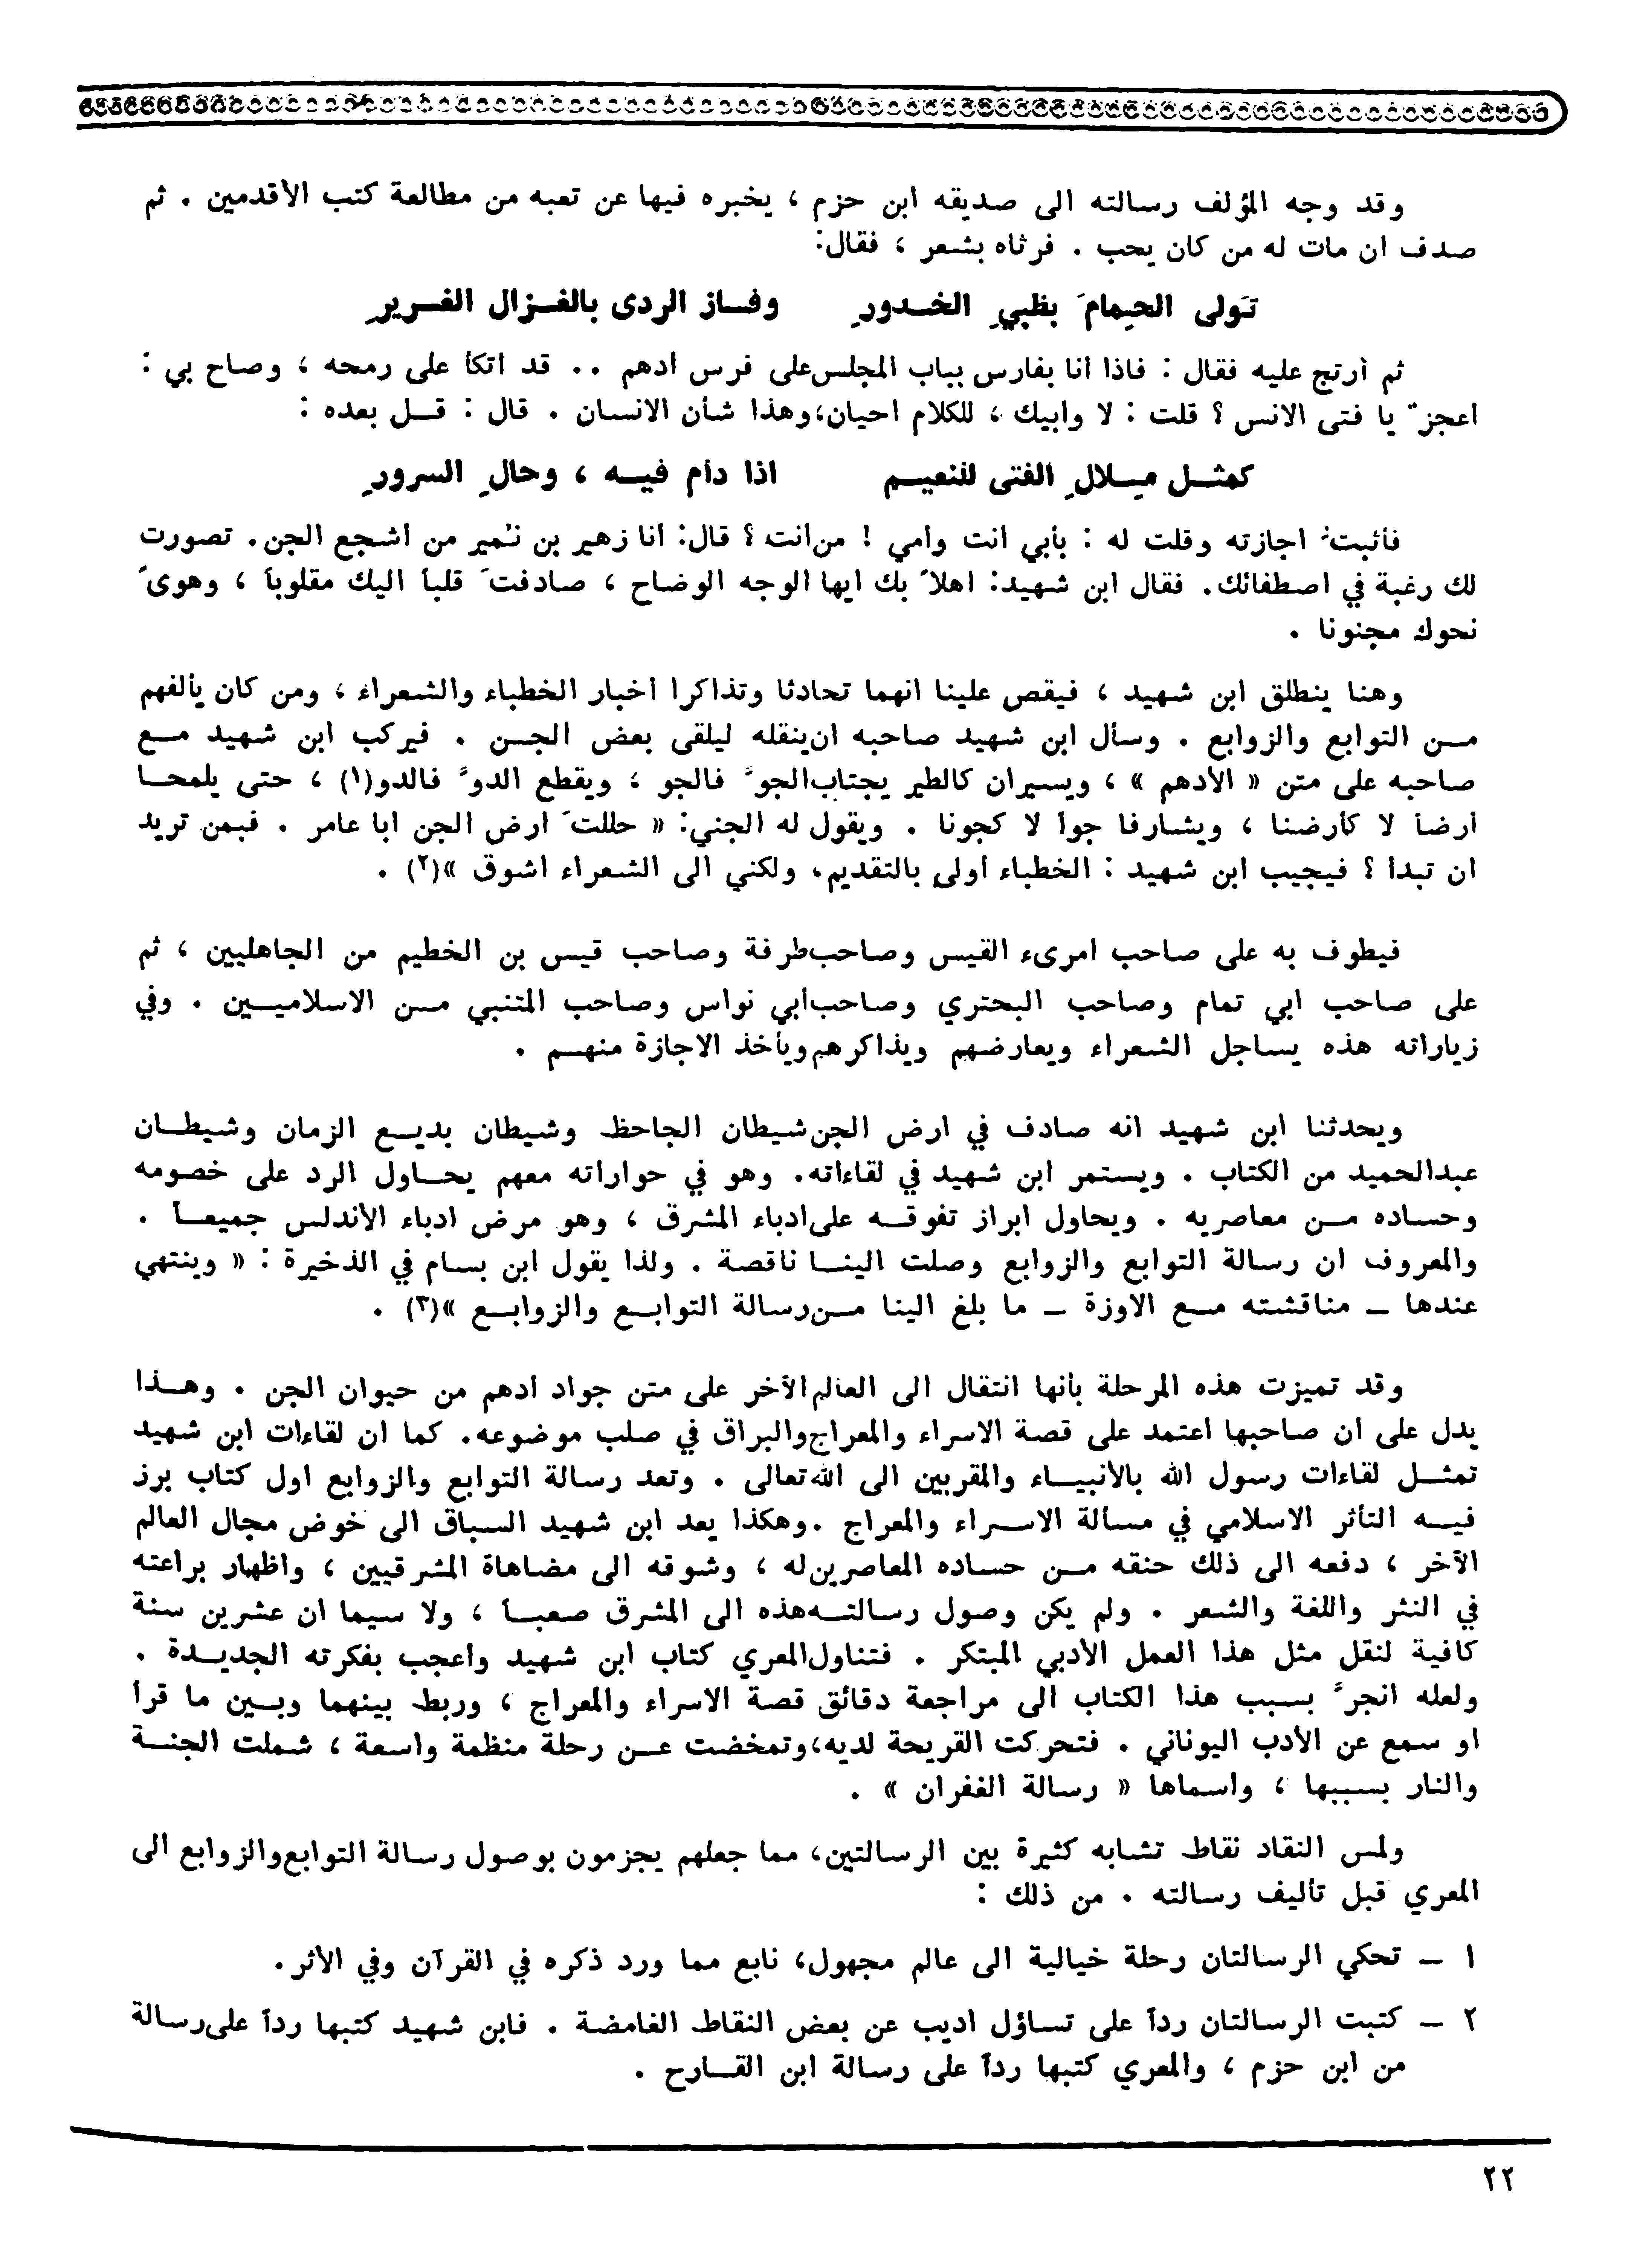 وقد وجه المؤلف رسالته الى صديقه ابن حزم ، يخبره فيها عن تعبه من مطالعة كتب الأقدمين . ثم
صدف ان مات له من كان يحب . فرثاه بشعر ، فقال:
تَولى الحِمامَ بظبيِ الخدورِ وفاز الردى بالغزال الغريرِ
ثم أرتج عليه فقال : فاذا أنا بفارس بباب المجلس على فرس أدهم .. قد اتكأ على رمحه ، وصاح بي :
أعجزَ يا فتى الانس ؟ قلت : لا وأبيك ، للكلام احيان، وهذا شأن الانسان . قال : قل بعده :
كمثل ملالِ الفتى للنعيم اذا دام فيه ، وحالِ السرورِ
فأثبتُ اجازته وقلت له : بأبي أنت وأمي ! من أنت ؟ قال: أنا زهير بن نُمير من أشجع الجن. تصورت
لك رغبة في اصطفائك. فقال ابن شهيد: اهلاً بك ايها الوجه الوضاح ، صادفتَ قلباً اليك مقلوباً ، وهوىً
نحوك مجنونا .
وهنا ينطلق ابن شهيد ، فيقص علينا انهما تحادثا وتذاكرا أخبار الخطباء والشعراء ، ومن كان يألفهم
من التوابع والزوابع . وسأل ابن شهيد صاحبه ان ينقله ليلقى بعض الجن . فيركب ابن شهيد مع
صاحبه على متن « الأدهم » ، ويسيران كالطير يجتاب الجوَّ فالجو ، ويقطع الدوَّ فالدو(١) ، حتى يلمحا
أرضاً لا كأرضنا ، ويشارفا جواً لا كجونا . ويقول له الجني: « حللتَ ارض الجن أبا عامر . فبمن تريد
ان تبدأ ؟ فيجيب ابن شهيد : الخطباء أولى بالتقديم، ولكني الى الشعراء اشوق »(٢) .
فيطوف به على صاحب امرىء القيس وصاحب طرفة وصاحب قيس بن الخطيم من الجاهليين ، ثم
على صاحب ابي تمام وصاحب البحتري وصاحب أبي نواس وصاحب المتنبي من الاسلاميين . وفي
زياراته هذه يساجل الشعراء ويعارضهم ويذاكرهم ويأخذ الاجازة منهم .
ويحدثنا ابن شهيد انه صادف في ارض الجن شيطان الجاحظ وشيطان بديع الزمان وشيطان
عبدالحميد من الكتاب . ويستمر ابن شهيد في لقاءاته. وهو في حواراته معهم يحاول الرد على خصومه
وحساده من معاصريه . ويحاول ابراز تفوقه على ادباء المشرق ، وهو مرض ادباء الأندلس جميعاً .
والمعروف ان رسالة التوابع والزوابع وصلت الينا ناقصة . ولذا يقول ابن بسام في الذخيرة : « وينتهي
عندها – مناقشته مع الاوزة – ما بلغ الينا من رسالة التوابع والزوابع »(٣) .
وقد تميزت هذه المرحلة بأنها انتقال الى العالم الآخر على متن جواد أدهم من حيوان الجن . وهذا
يدل على ان صاحبها اعتمد على قصة الاسراء والمعراج والبراق في صلب موضوعه. كما ان لقاءات ابن شهيد
تمثل لقاءات رسول الله بالأنبياء والمقربين الى الله تعالى . وتعد رسالة التوابع والزوابع اول كتاب برز
فيه التأثر الاسلامي في مسألة الاسراء والمعراج .وهكذا يعد ابن شهيد السباق الى خوض مجال العالم
الآخر ، دفعه الى ذلك حنقه من حساده المعاصرين له ، وشوقه الى مضاهاة المشرقيين ، واظهار براعته
في النثر واللغة والشعر . ولم يكن وصول رسالته هذه الى المشرق صعباً ، ولا سيما ان عشرين سنة
كافية لنقل مثل هذا العمل الأدبي المبتكر . فتناول المعري كتاب ابن شهيد واعجب بفكرته الجديدة .
ولعله انجرَّ بسبب هذا الكتاب الى مراجعة دقائق قصة الاسراء والمعراج ، وربط بينهما وبين ما قرأ
او سمع عن الأدب اليوناني . فتحركت القريحة لديه، وتمخضت عن رحلة منظمة واسعة ، شملت الجنة
والنار بسببها ، واسماها « رسالة الغفران » .
ولمس النقاد نقاط تشابه كثيرة بين الرسالتين، مما جعلهم يجزمون بوصول رسالة التوابع والزوابع الى
المعري قبل تأليف رسالته . من ذلك :
١ – تحكي الرسالتان رحلة خيالية الى عالم مجهول، نابع مما ورد ذكره في القرآن وفي الأثر.
٢ – كتبت الرسالتان رداً على تساؤل اديب عن بعض النقاط الغامضة . فابن شهيد كتبها رداً على رسالة
من ابن حزم ، والمعري كتبها رداً على رسالة ابن القارح .
٢٢